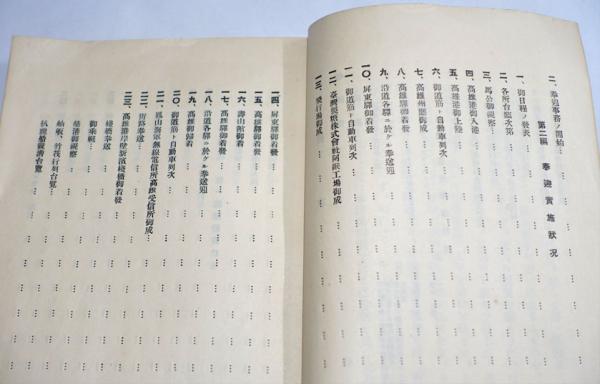 二、奉迎事務ノ開始…
第二編　奉迎實施狀況
一、御日程ノ發表…
二、各所台臨次第…
三、馬公御視察…
四、高雄港御入港…
五、高雄港御上陸…
六、御道筋ト自動車列次…
七、高雄州廳御成…
八、高雄驛御着發…
九、沿道各驛ニ於ケル奉送迎…
一〇、屏東驛御着發…
一一、御道筋ト自動車列次…
一二、臺灣製糖株式會社阿緱工場御成…
一三、飛行場御成…
一四、屏東驛御着發…
一五、高雄驛御着發…
一六、壽山館御着…
一七、高雄驛御着發…
一八、沿道各驛ニ於ケル奉送迎…
一九、高雄御歸着…
二〇、御道筋ト自動車列次…
二一、鳳山海軍無線電信所高雄受信所御成…
二二、街路奉送…
二三、高雄港岸壁新濱棧橋御着發…
棧橋奉送…
御乘艇…
築港御視察…
舢舨、竹筏行列台覽…